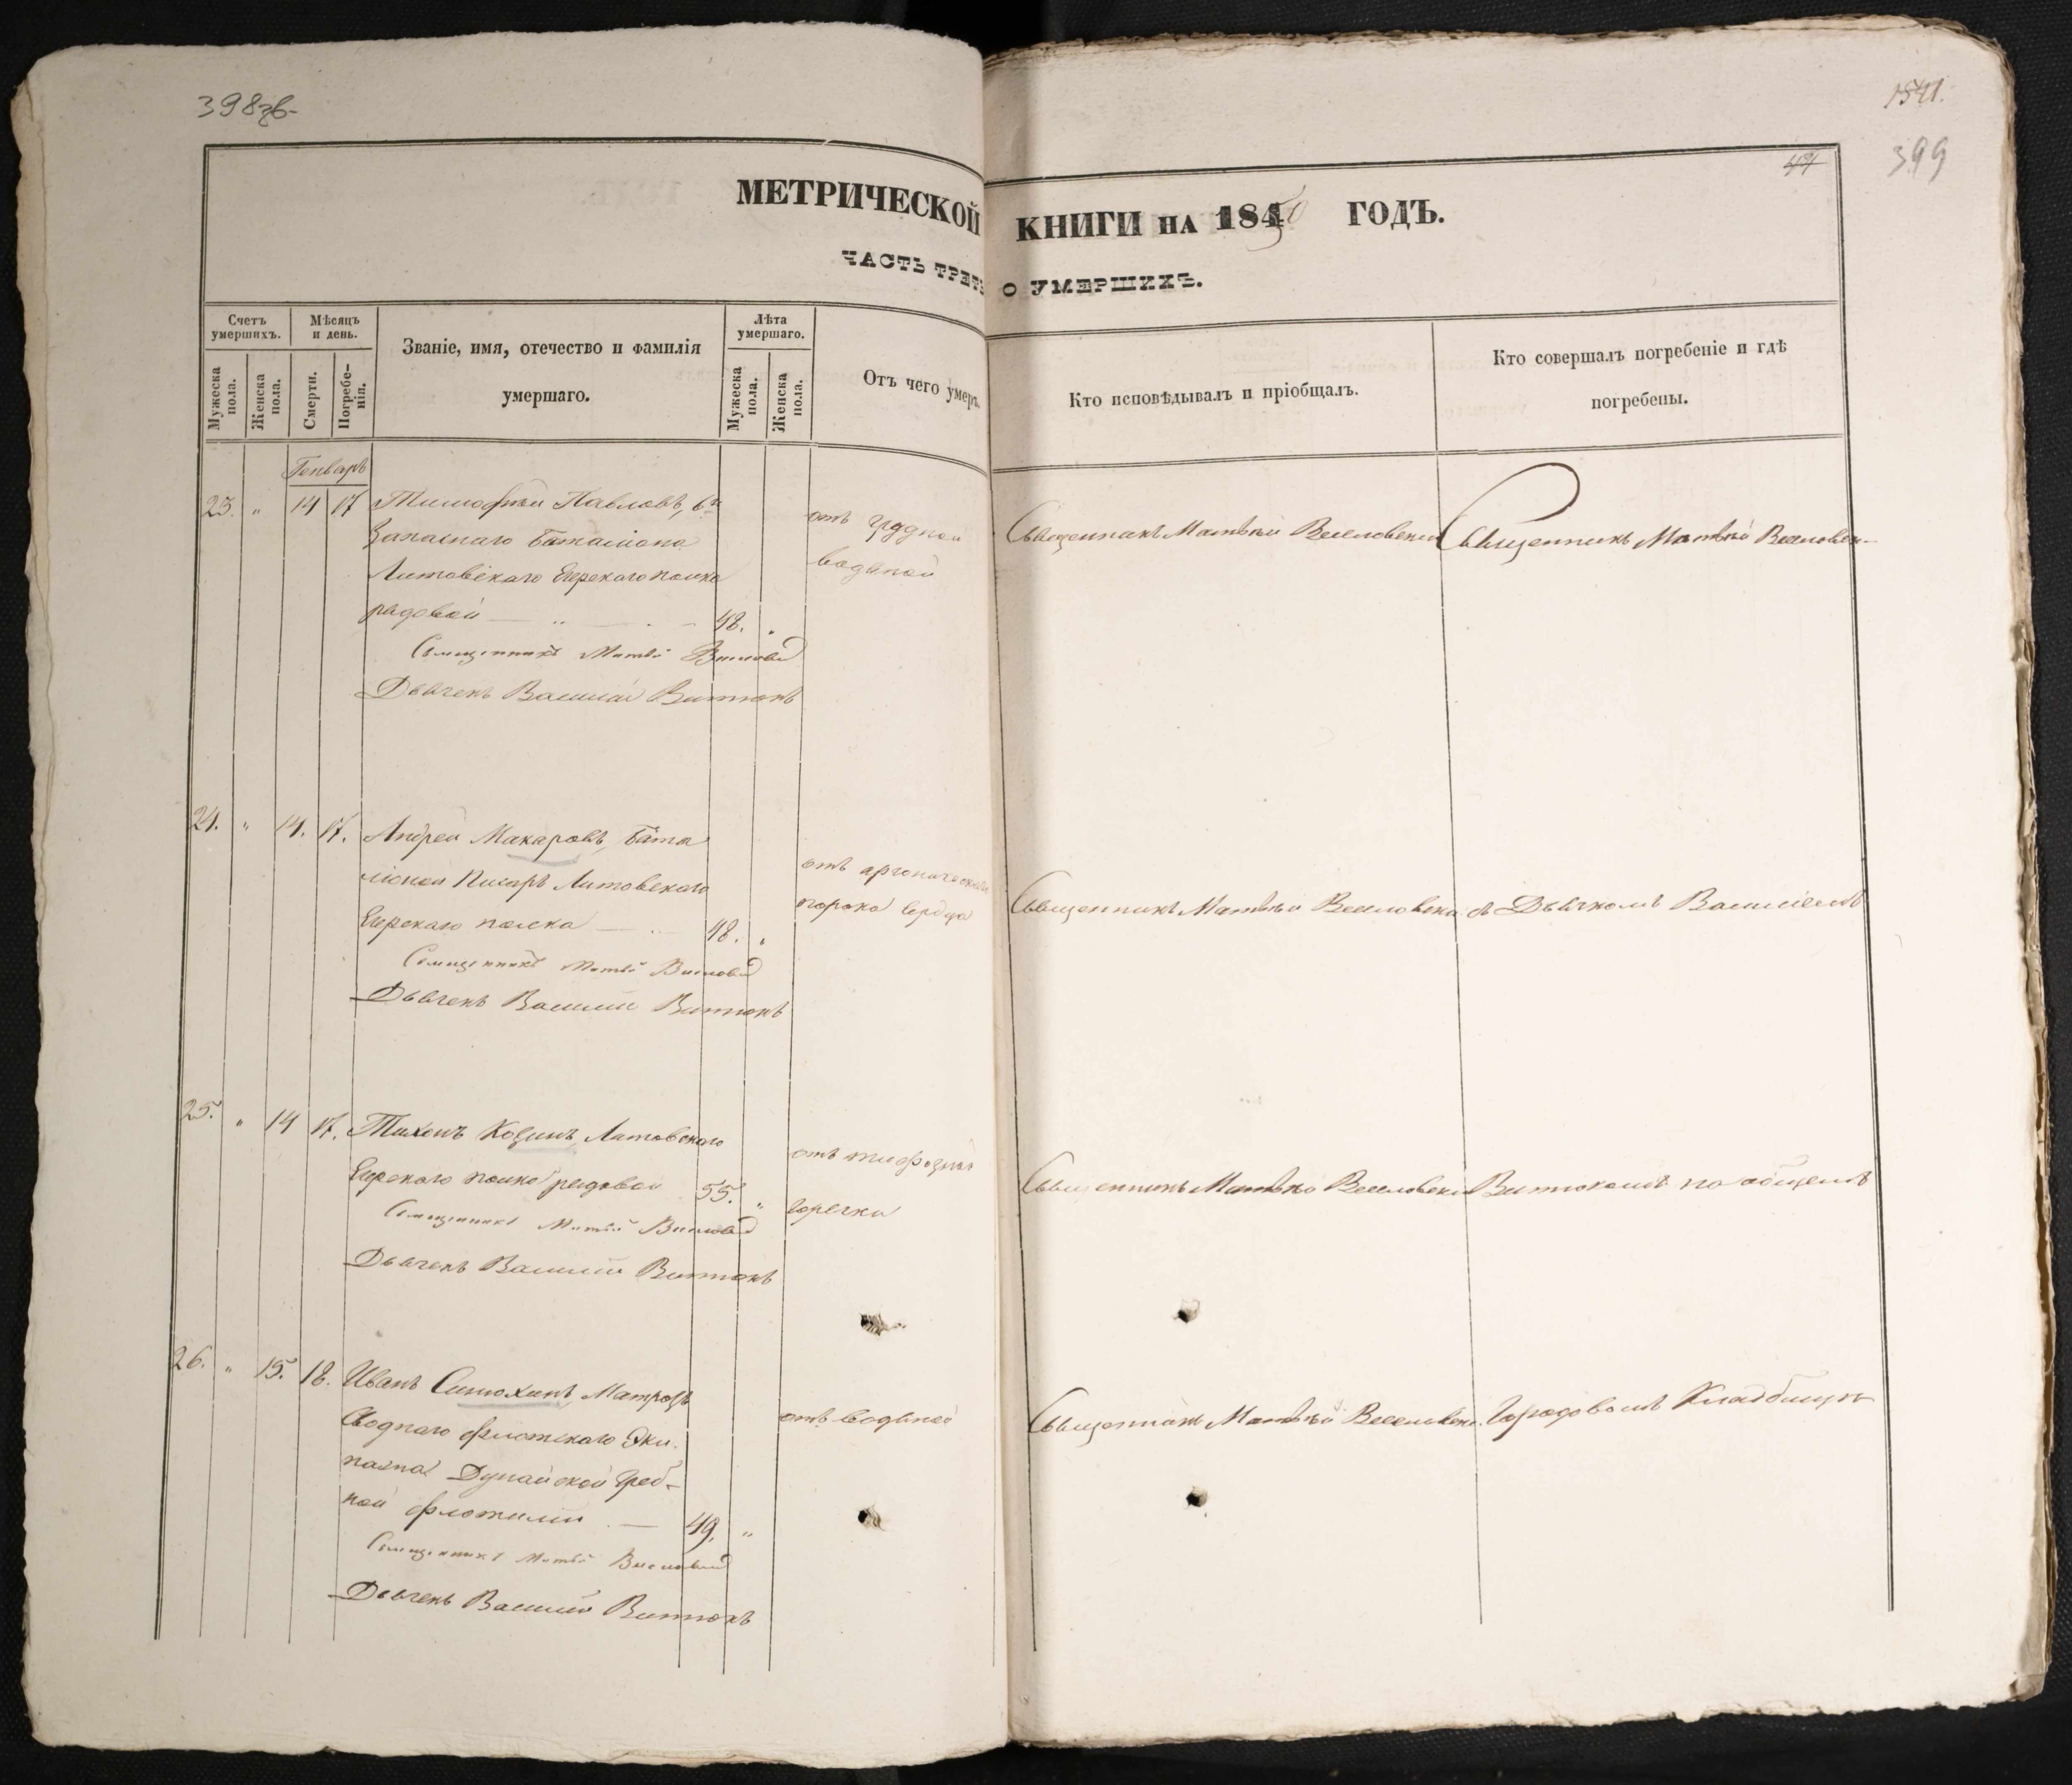 398об-
1541.
399
44
МЕТРИЧЕСКОЙ КНИГИ НА 1850 ГОДЪ.
ЧАСТЬ ТРЕТЬ О УМЕРШИХЪ.
Счетъ умершихъ.
Мужеска пола.
Женска пола.
Мѣсяцъ и день.
Смерти.
Погребе-нія.
Званіе, имя, отечество и фамилія
умершаго.
Лѣта умершаго.
Мужеска пола.
Женска пола.
Отъ чего умеръ.
Кто исповѣдывалъ и пріобщалъ.
Кто совершалъ погребеніе и гдѣ
погребены.
Генварь
23. " 14 17 Тимофѣй Павловъ, 6го
Запаснаго Баталіона
Литовскаго Егерскаго полка
рядовой 48. "
Священникъ Матѳей
Дьячекъ Василій Витюкъ
отъ грудной
водяной
Священникъ Матвѣй Веселовскій
Священникъ Матвѣй Веселовск-
24. " 14. 17. Андрей Макаровъ, Бата
ліонной Писарь Литовскаго
Егерскаго полка 48. "
Священникъ Матѳей
Дьячекъ Василій Витюкъ
отъ органическаго
порока сердца
Священникъ Матвѣй Веселовскій
съ Дьячкомъ Василіемъ
25. " 14 17. Тихонъ Козинъ, Литовскаго
Егерскаго полка рядовой 55. "
Священникъ Матѳей
Дьячекъ Василій Витюкъ
отъ тифозной
горячки
Священникъ Матвѣй Веселовскій
Витюкомъ на общемъ
26. " 15. 18. Иванъ Синюхинъ, Матрозъ
Своднаго флотскаго Эки-
пажа Дунайской Греб-
ной флотиліи 49. "
Священникъ Матѳей
Дьячекъ Василій Витюкъ
отъ водяной
Священникъ Матвѣй Веселовскій
Городовомъ Кладбищѣ